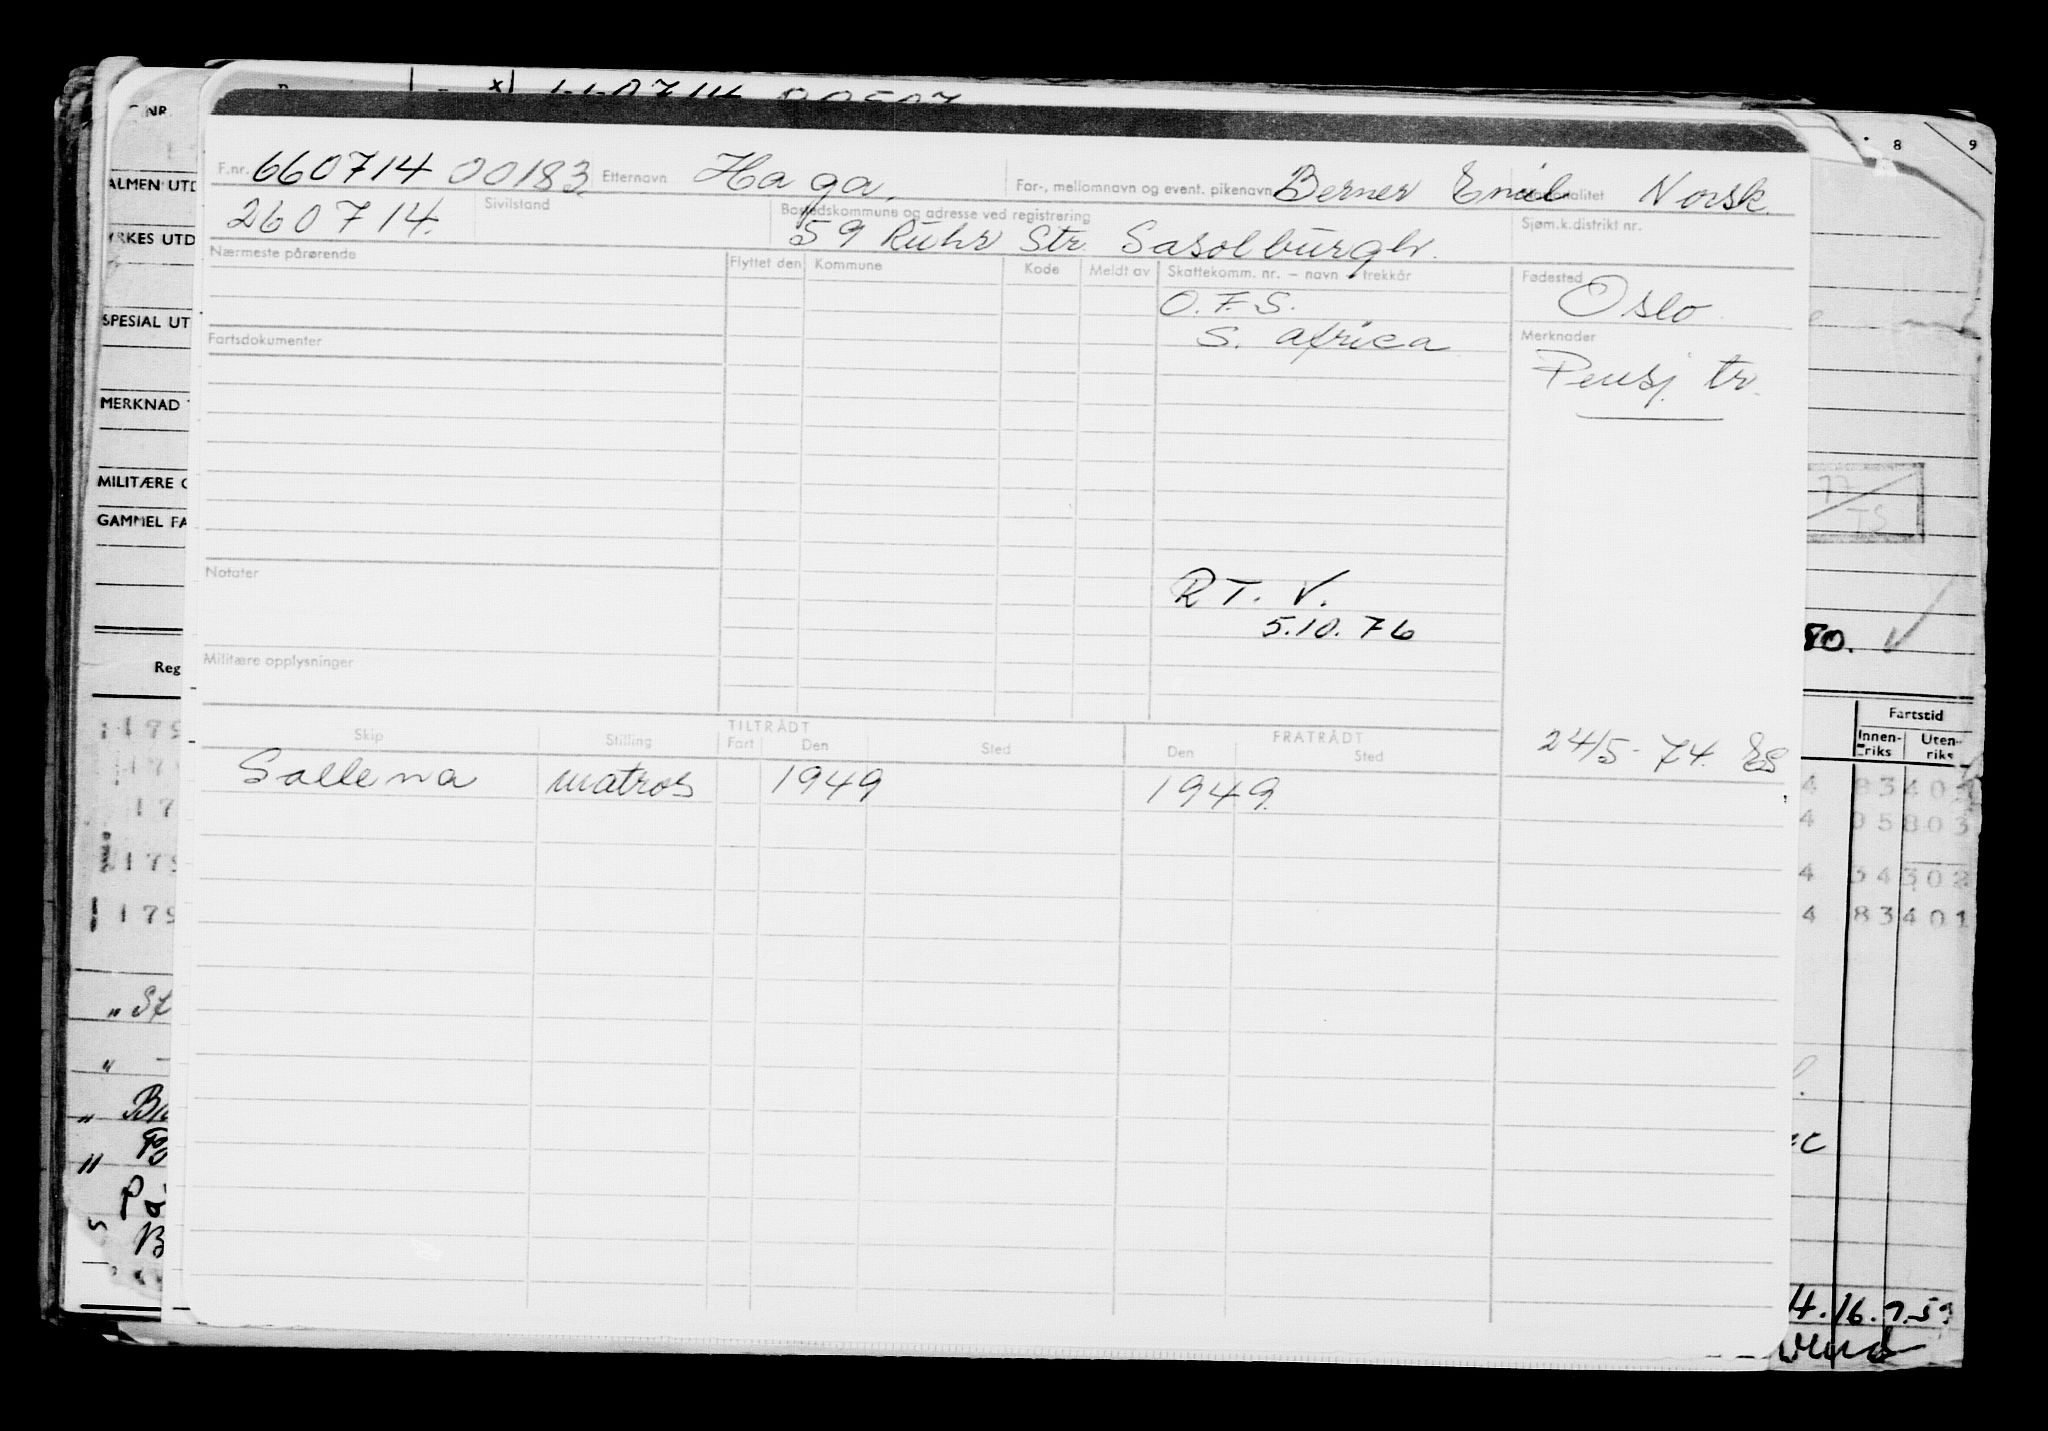 F.nr. 660714 00183 Etternavn Haga, For-, mellomnavn og event. pikenavn Berner Emil Nasjonalitet Norsk.
260714. Sivilstand Bostedskommune og adresse ved registrering Sjøm.k.distrikt nr.
59 Ruhr Str. Sasolburgh.
Nærmeste pårørende Flyttet den Kommune Kode Meldt av Skattekomm. nr. – navn – trekkår Fødested Oslo
O.F.S.
S. Africa
Fartsdokumenter Merknader
Pensj. tr.
Notater
R T. V.
5.10.76
Militære opplysninger
Skip Stilling TILTRÅDT Fart Den Sted FRATRÅDT Den Sted
24/5-74. ES
Sallema matros 1949 1949.
NR.
ALMEN UTD
YRKES UTD
SPESIAL UT
MERKNAD
MILITÆRE
GAMMEL FA
Reg
8 9
77
TS
80.
Fartstid
Innen-riks Uten-riks
4 83401
4 05803
4 54302
4 83401
179
179
17
179
179
16.9.59